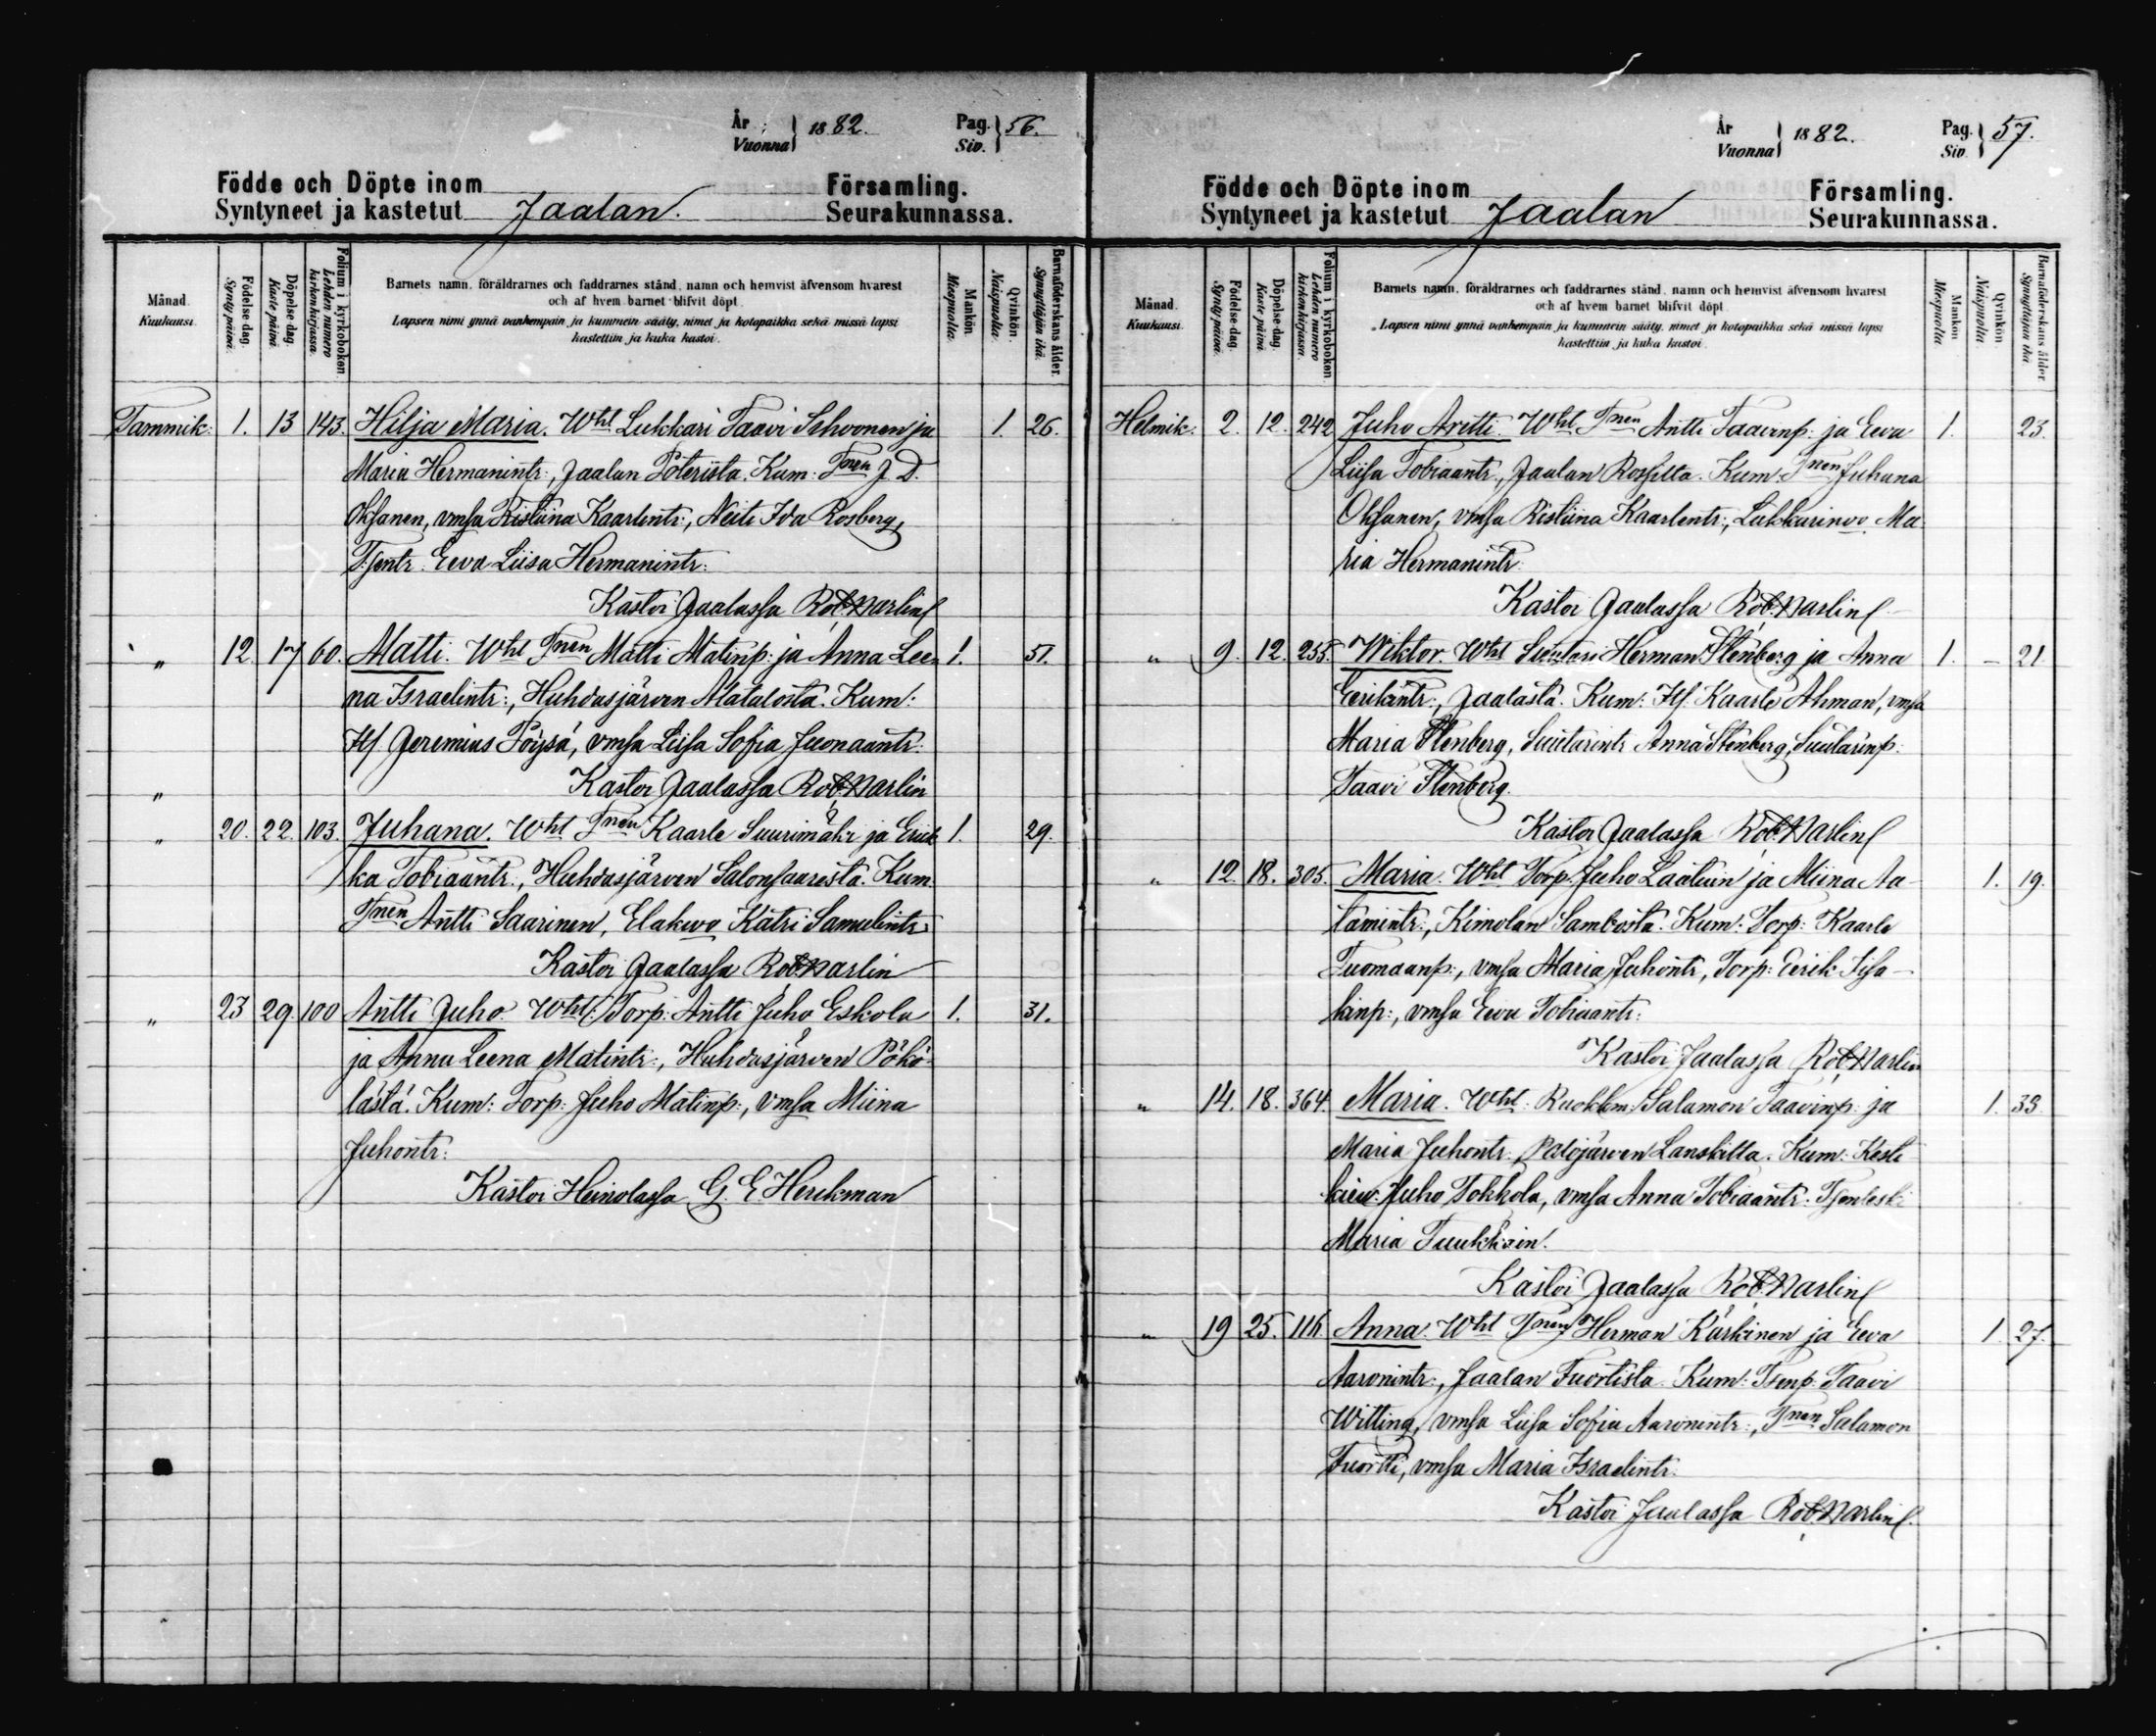 År Vuonna } 1882. Pag. Siv. } 56.
Födde och Döpte inom Församling.
Syntyneet ja kastetut Jaalan. Seurakunnassa.
Månad. Kuukausi.
Födelse dag. Synty päivä.
Döpelse dag. Kaste päivä.
Folium i kyrkoboken Lehden numero kirkonkirjassa.
Barnets namn, föräldrarnes och faddrarnes stånd, namn och hemvist äfvensom hvarest
och af hvem barnet blifvit döpt.
Lapsen nimi ynnä vanhempain ja kummein sääty, nimet ja kotopaikka sekä missä lapsi
kastettiin ja kuka kastoi.
Mankön. Miespuolta.
Qvinkön. Naispuolta.
Barnaföderskans ålder. Synnyttäjän ikä.
Tammik: 1. 13 143. Hilja Maria. Wht Lukkari Taavi Sihvonen ja 1. 26.
Maria Hermanintr:, Jaalan Poterista. Kum: Tnen J. D.
Oksanen, vmsa Ristiina Kaarlentr:, Neiti Ida Rosberg,
Tjentr. Eeva Liisa Hermanintr:
Kastoi Jaalassa Rob. Narlin
" 12. 17 60. Matti. Wht Tnen Matti Matinp: ja Anna Lee- 1. 51.
na Israelintr:, Huhdasjärven Matalosta. Kum:
Itl Jeremias Pöysä, vmsa Liisa Sofia Juonaantr:
" Kastoi Jaalassa Rob. Narlin
" 20. 22. 103. Juhana. Wht Tnen Kaarle Suurimäki ja Erik 1. 29.
ka Tobiaantr:, Huhdasjärven Salonsaaresta. Kum.
Tnen Antti Saarinen, Elakwo Katri Samulintr:
Kastoi Jaalassa Rob Narlin
" 23 29. 100 Antti Juho. Wht: Torp: Antti Juho Eskola 1. 31.
ja Anna Leena Matintr:, Huhdasjärven Pökö-
lästä. Kum: Torp: Juho Matinp:, vmsa Miina
Juhontr:
Kastoi Heinolassa G. E. Herckman
År Vuonna } 1882. Pag. Siv. } 57.
Födde och Döpte inom Församling.
Syntyneet ja kastetut Jaalan Seurakunnassa.
Månad. Kuukausi.
Födelse-dag. Synty päivä.
Döpelse-dag. Kaste päivä.
Folium i kyrkoboken Lehden numero kirkonkirjassa.
Barnets namn, föräldrarnes och faddrarnes stånd, namn och hemvist äfvensom hvarest
och af hvem barnet blifvit döpt.
Lapsen nimi ynnä vanhempain ja kummein sääty, nimet ja kotopaikka sekä missä lapsi
kastettiin ja kuka kastoi.
Mankön Miespuolta
Qvinkön Naispuolta
Barnaföderskans ålder. Synnyttäjän ikä
Helmik. 2. 12. 242 Juho Antti. Wht Tnen Antti Taavinp: ja Eeva 1. 23.
Liisa Tobiaantr, Jaalan Rossilta. Kum: Tnen Juhana
Oksanen, vmsa Ristiina Kaarlentr:, Lukkarinvo Ma-
ria Hermanintr:
Kastoi Jaalassa Rob. Narlin
" 9. 12. 255. Wiktor. Wht Suutari Herman Stenberg ja Anna 1. – 21.
Eerikintr:, Jaalasta. Kum: Itl. Kaarle Ahman, vmsa
Maria Stenberg, Suutarintr Anna Stenberg, Suutarinp:
Taavi Stenberg.
Kastoi Jaalassa Rob. Narlin
" 12. 18. 305. Maria. Wht Torp. Juho Laatuin ja Miina Aa- 1. 19.
tamintr:, Kimolan Sambosta. Kum: Torp: Kaarle
Tuomaanp:, vmsa Maria Juhontr, Torp: Eerik Iisa-
kinp:, vmsa Eeva Tobiaantr:
Kastoi Jaalassa Rob Narlin
" 14. 18. 364 Maria. Wht: Ruokkm: Salamon Taavinp: ja 1. 33.
Maria Juhontr:, Palojärven Lanskilta. Kum: Kesti
kiev: Juho Tokkola, vmsa Anna Tobiaantr. Tjenleski
Maria Tuukkoin.
Kastoi Jaalassa Rob. Narlin
" 19 25. 116 Anna. Wht Tnen Herman Kärkinen ja Eeva 1. 27.
Aaronintr:, Jaalan Tuortista. Kum: Tsenp: Taavi
Witting, vmsa Liisa Sofia Aaronintr:, Tnen Salamon
Tuortti, vmsa Maria Israelintr:
Kastoi Jaalassa Rob. Narlin